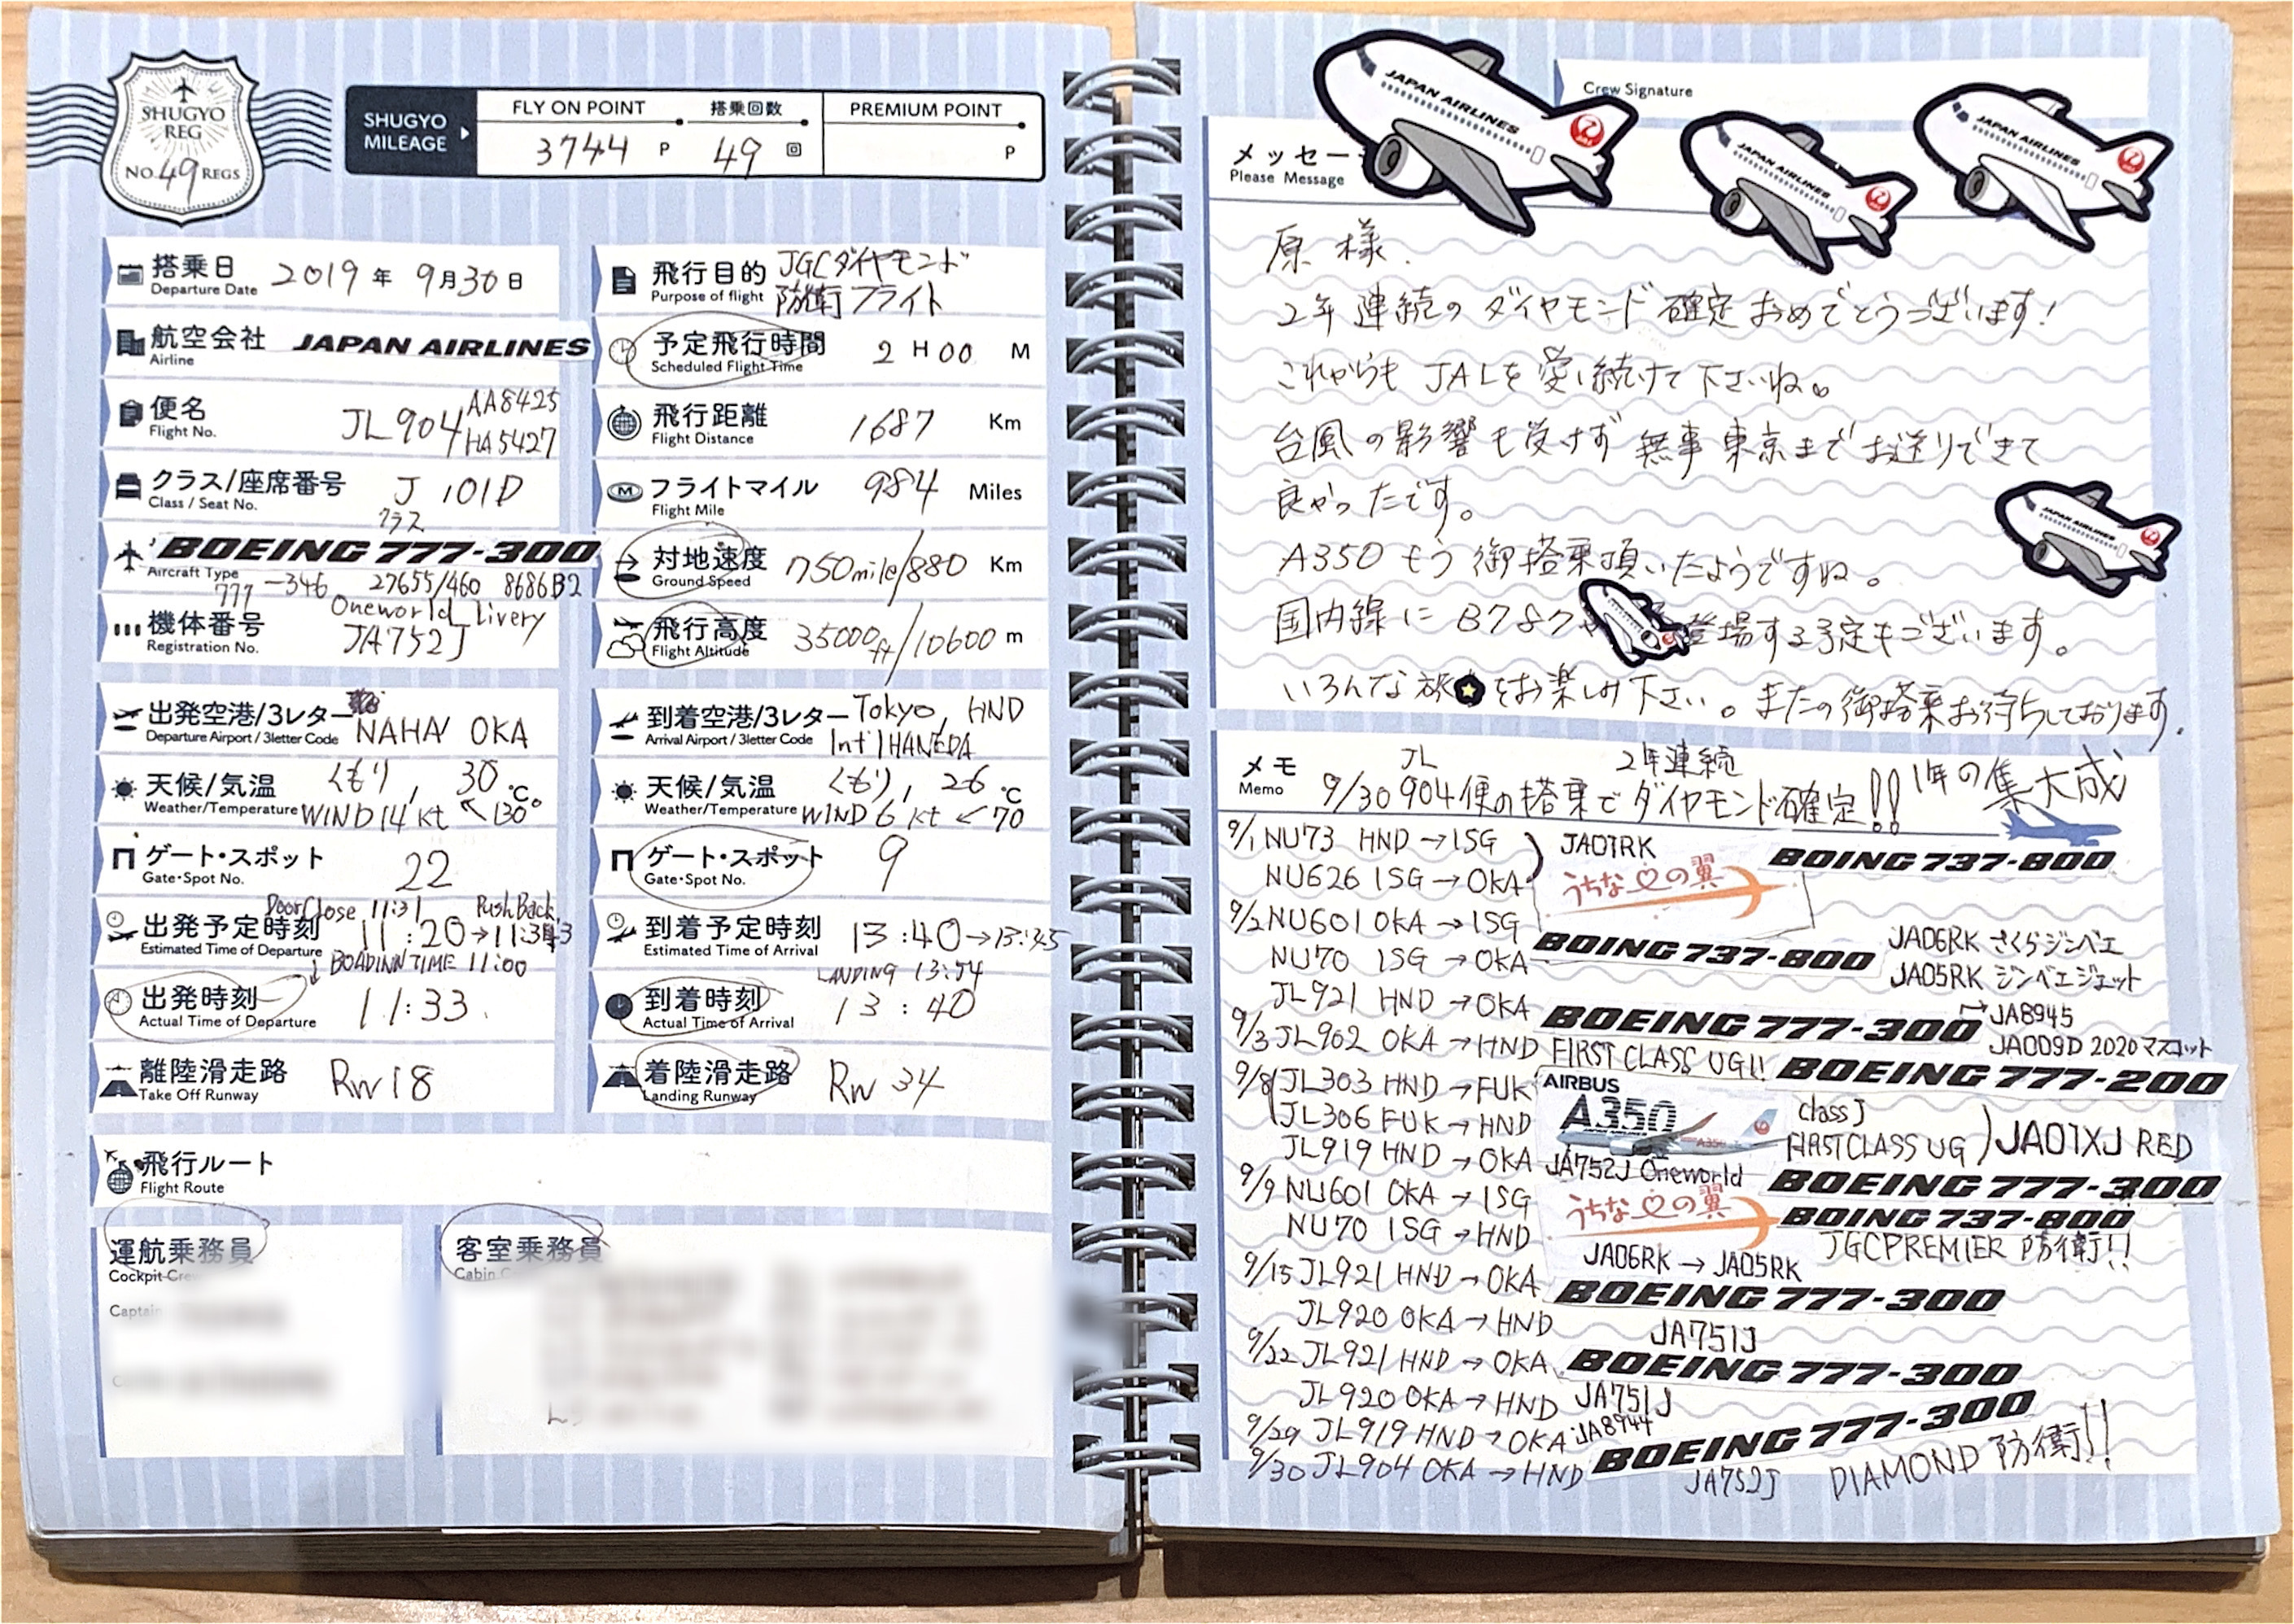 SHUGYO
REG
NO. 49 REGS
SHUGYO
MILEAGE
FLY ON POINT
3744 P
搭乗回数
49 回
PREMIUM POINT
P
搭乗日 2019 年 9月30日
Departure Date
航空会社 JAPAN AIRLINES
Airline
便名 JL904 AA8425
Flight No. HA5427
クラス/座席番号 J 101D
Class / Seat No. クラス
BOEING 777-300
Aircraft Type
777 -346 27655/460 8686B2
Oneworld Livery
機体番号 JA752J
Registration No.
飛行目的 JGCダイヤモンド
Purpose of flight 防衛フライト
予定飛行時間 2 H 00 M
Scheduled Flight Time
飛行距離 1687 Km
Flight Distance
フライトマイル 984 Miles
Flight Mile
対地速度 750mile/880 Km
Ground Speed
飛行高度 35000ft/10600 m
Flight Altitude
出発空港/3レター NAHA OKA
Departure Airport / 3letter Code
天候/気温 くもり, 30 °C
Weather/Temperature WIND 14 kt ↖130°
ゲート・スポット 22
Gate・Spot No.
Door Close 11:31 Push Back
出発予定時刻 11:20→11:33
Estimated Time of Departure BOADINN TIME 11:00
出発時刻 11:33
Actual Time of Departure
離陸滑走路 RW 18
Take Off Runway
到着空港/3レター Tokyo, HND
Arrival Airport / 3letter Code Int'l HANEDA
天候/気温 くもり, 26 °C
Weather/Temperature WIND 6 kt ↙ 70
ゲート・スポット 9
Gate・Spot No.
到着予定時刻 13:40→13:45
Estimated Time of Arrival
LANDING 13:34
到着時刻 13:40
Actual Time of Arrival
着陸滑走路 RW 34
Landing Runway
飛行ルート
Flight Route
運航乗務員
Cockpit Cre
Captain
客室乗務員
Cabin C
Crew Signature
JAPAN AIRLINES
JAPAN AIRLINES
JAPAN AIRLINES
メッセー
Please Message
原 様.
2年連続のダイヤモンド確定おめでとうございます!
これからも JALを愛し続けて下さいね。
台風の影響も受けず 無事東京までお送りできて
良かったです。
JAPAN AIRLINES
A350もう御搭乗頂いたようですね。
国内線に B787 登場する予定もございます。
いろんな旅をお楽しみ下さい。またの御搭乗お待ちしております.
メモ
Memo
JL 2年連続
9/30 904便の搭乗でダイヤモンド確定!! 1年の集大成
9/1 NU73 HND→ISG JA01RK
NU626 ISG→OKA うちなの翼 BOING 737-800
9/2 NU601 OKA→ISG
NU70 ISG→OKA BOING 737-800 JA06RK さくらジンベエ
JA05RK ジンベエジェット
JL921 HND→OKA BOEING 777-300 →JA8945
9/3 JL902 OKA→HND FIRST CLASS UG!! JA009D 2020マスコット
BOEING 777-200
9/8 JL303 HND→FUK AIRBUS A350 class J
JL306 FUK→HND FIRST CLASS UG JA01XJ RED
JL919 HND→OKA JA752J Oneworld BOEING 777-300
9/9 NU601 OKA→ISG うちなの翼 BOING 737-800
NU70 ISG→HND JGCPREMIER 防衛!!
JA06RK → JA05RK
9/15 JL921 HND→OKA BOEING 777-300
JL920 OKA→HND JA751J
9/22 JL921 HND→OKA BOEING 777-300
JL920 OKA→HND JA751J
9/29 JL919 HND→OKA JA8944 BOEING 777-300
9/30 JL904 OKA→HND JA752J DIAMOND 防衛!!